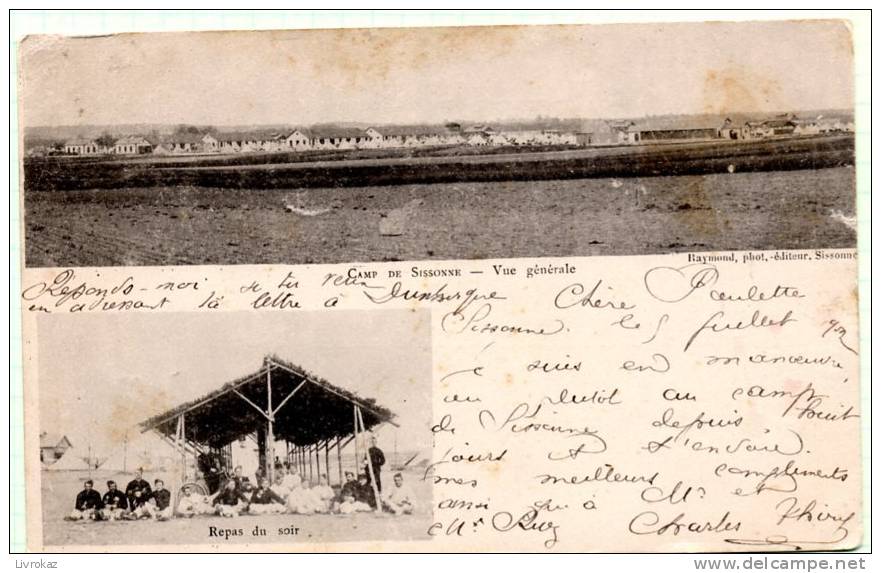 Camp de Sissonne — Vue générale
Raymond, phot.-éditeur, Sissonne
Réponds-moi si tu veux
en adressant la lettre à Dunkerque
Chère Poulette
Sissonne. le 5 juillet
Je suis en manœuvre
ou plutôt au camp
de Sissonne depuis huit
jours et t'envoie
mes meilleurs compliments
ainsi qu'à Mr et
Charles Thiry
Repas du soir
Livrokaz
www.delcampe.net